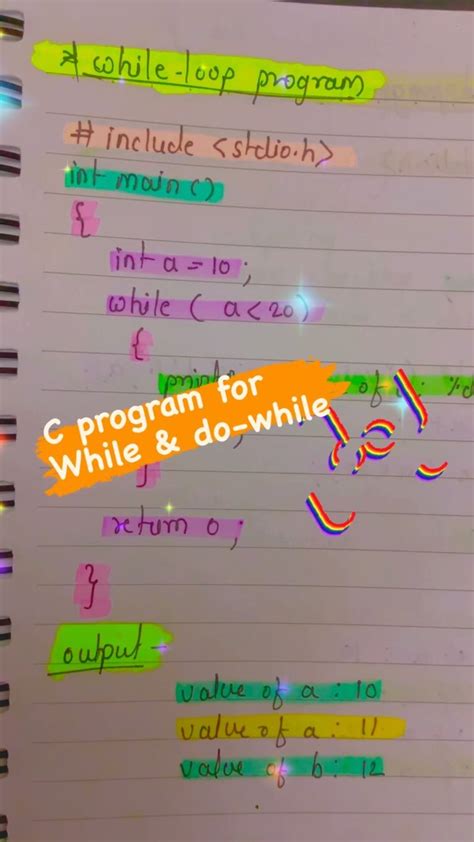 * while-loop program
# include <stdio.h>
int main()
{
int a = 10;
while ( a<20)
{
of : %d
C program for
While & do-while
}
return 0;
}
output -
value of a : 10
value of a : 11
value of b : 12